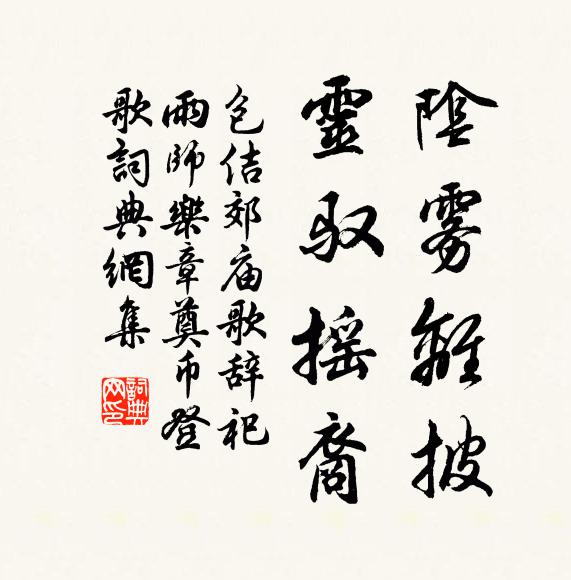 陰雾離披
靈驭摇裔
包佶郊庙歌辞祀
雨師樂章奠币登
歌詞典網集
詞典
网印